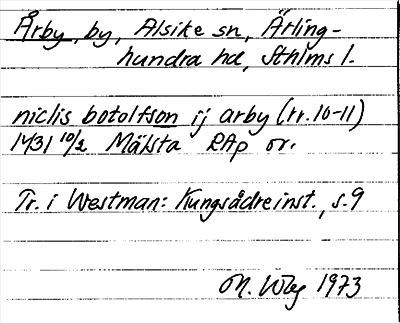 Årby, by, Alsike sn, Ärling-
hundra hd, Sthlms l.
niclis botolfson ij arby (rr. 10-11)
1431 10/2 Mälsta RAp or.
Tr. i Westman: Kungsådreinst., s. 9
M. 1973